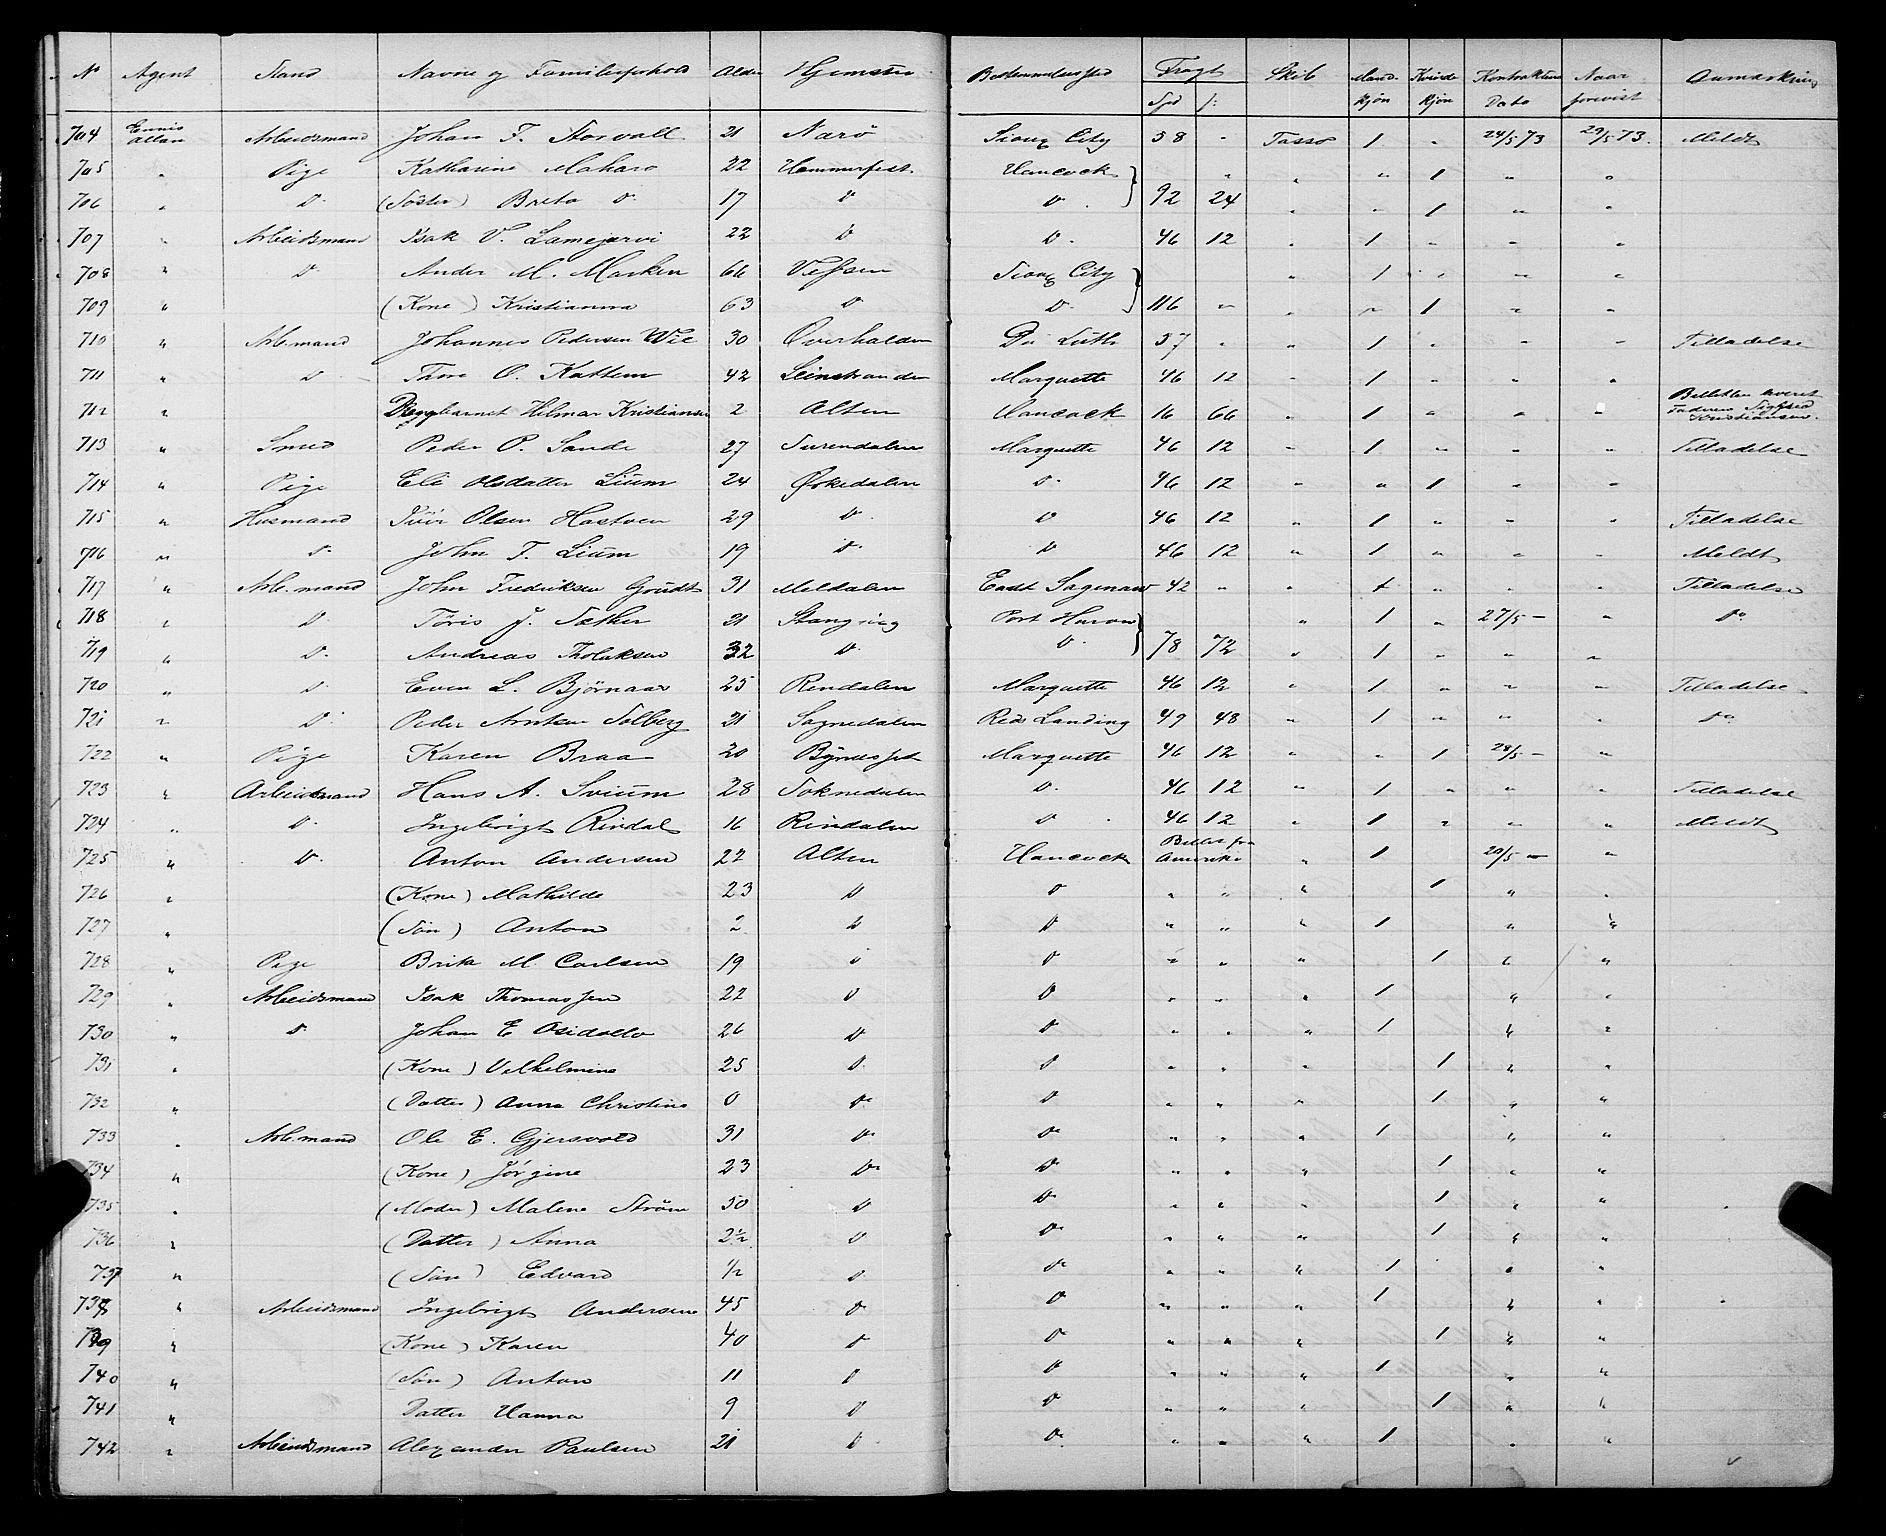 No Agent Stand Navne og Familieforhold Alder Hjemsted Bestemmelsessted Fragt Skib Mand- Kvinde Kontraktens Naar Anmærkning
Spd s: kjøn kjøn Dato forevist
704 Ennis Allan Arbeidsmand Johan F. Storvall 21 Nærö Sioux City 58 - Tasso 1 " 24/5 73 29/5 73. Meldt
705 " Pige Katharine Maharo 22 Hammerfest. Hancock } " " " 1 " "
706 " D. (Söster) Breta D. 17 D D. } 92 24 " " 1 " "
707 " Arbeidsmand Isak V. Lamejervi 22 D D. 46 12 " 1 " " "
708 " D. Ander M. Marken 66 Vefsen Sioux City } " 1 " " "
709 " (Kone) Kristianna 63 D D. } 116 " " " 1 " "
710 " Arb.mand Johannes Pedersen Wie 30 Overhalden Du Luth 57 " " 1 " " " Tilladelse
711 " D Thore O. Kattem 42 Leinstranden Marquette 46 12 " 1 " " "
712 " Pleggebarnet Hilmar Kristiansen 2 Alten Hancock 16 66 " 1 " " " Billetten Faderen Kristiansen.
713 " Smed Peder P. Sande 27 Surendalen Marquette 46 12 " 1 " " " Tilladelse
714 " Pige Eli Olsdatter Lium 24 Örkedalen D. 46 12 " " 1 " "
715 " Husmand Iver Olsen Hostven 29 D. D 46 12 " 1 " " " Tilladelse
716 " D. John F. Lium 19 D. D 46 12 " 1 " " " Meldt
717 " Arb.mand John Fredriksen Grudt 31 Meldalen East Sagenaw 42 " " 1 " " " Tilladelse
718 " D. Töris J. Sæther 21 Stangvig Port Huron } " 1 " 27/5 - " Do
719 " D. Andreas Tholaksen 32 D. D. } 78 72 " 1 " " "
720 " D. Even L. Björnaas 25 Rendalen Marquette 46 12 " 1 " " " Tilladelse
721 " D. Peder Arntsen Solberg 21 Sognedalen Reds Landing 49 48 " 1 " " " Do
722 " Pige Karen Braa 20 Bynesset Marquette 46 12 " " 1 28/5 - "
723 " Arbeidsmand Hans A. Svium 28 Soknedalen D. 46 12 " 1 " " " Tilladelse
724 " D. Ingebrigt Rindal 16 Rindalen D 46 12 " 1 " " " Meldt
725 " D. Anton Andersen 22 Alten Hancock Billet fra Amerika " 1 29/5 - "
726 " (Kone) Mathilde 23 D D " " " 1 " "
727 " (Sön) Anton D D " " " 1 " "
728 " Pige Brita M. Carlsen 19 D D " " " 1 " "
729 " Arbeidsmand Isak Thomassen 22 D D " " " 1 " "
730 " D. Johan E Osidallo 26 D D " " " 1 " "
731 " (Kone) Vilhelmine 25 D. D " " " 1 " "
732 " (Datter) Anna Christine 0 Do D " " " 1 " "
733 " Arb.mand Ole E. Gjersvold 31 Do Do " " " 1 " "
734 " (Kone) Jörgine 23 Do Do " " " 1 " "
735 " (Moder) Malene Ström 50 D Do " " " 1 " "
736 " (Datter) Anna 2½ D Do " " " 1 " "
737 " (Sön) Edvard ½ D Do " " " 1 " "
738 " Arbeidsmand Ingebrigt Andersen 45 Do D " " " 1 " "
739 " (Kone) Karen 40 D Do " " " 1 " "
740 " (Sön) Anton 11 D D " " " 1 " "
741 " Datter Hanna 9 D Do " " " 1 " "
742 " Arbeidsmand Alexander Paulsen 21 D Do " " " 1 " "